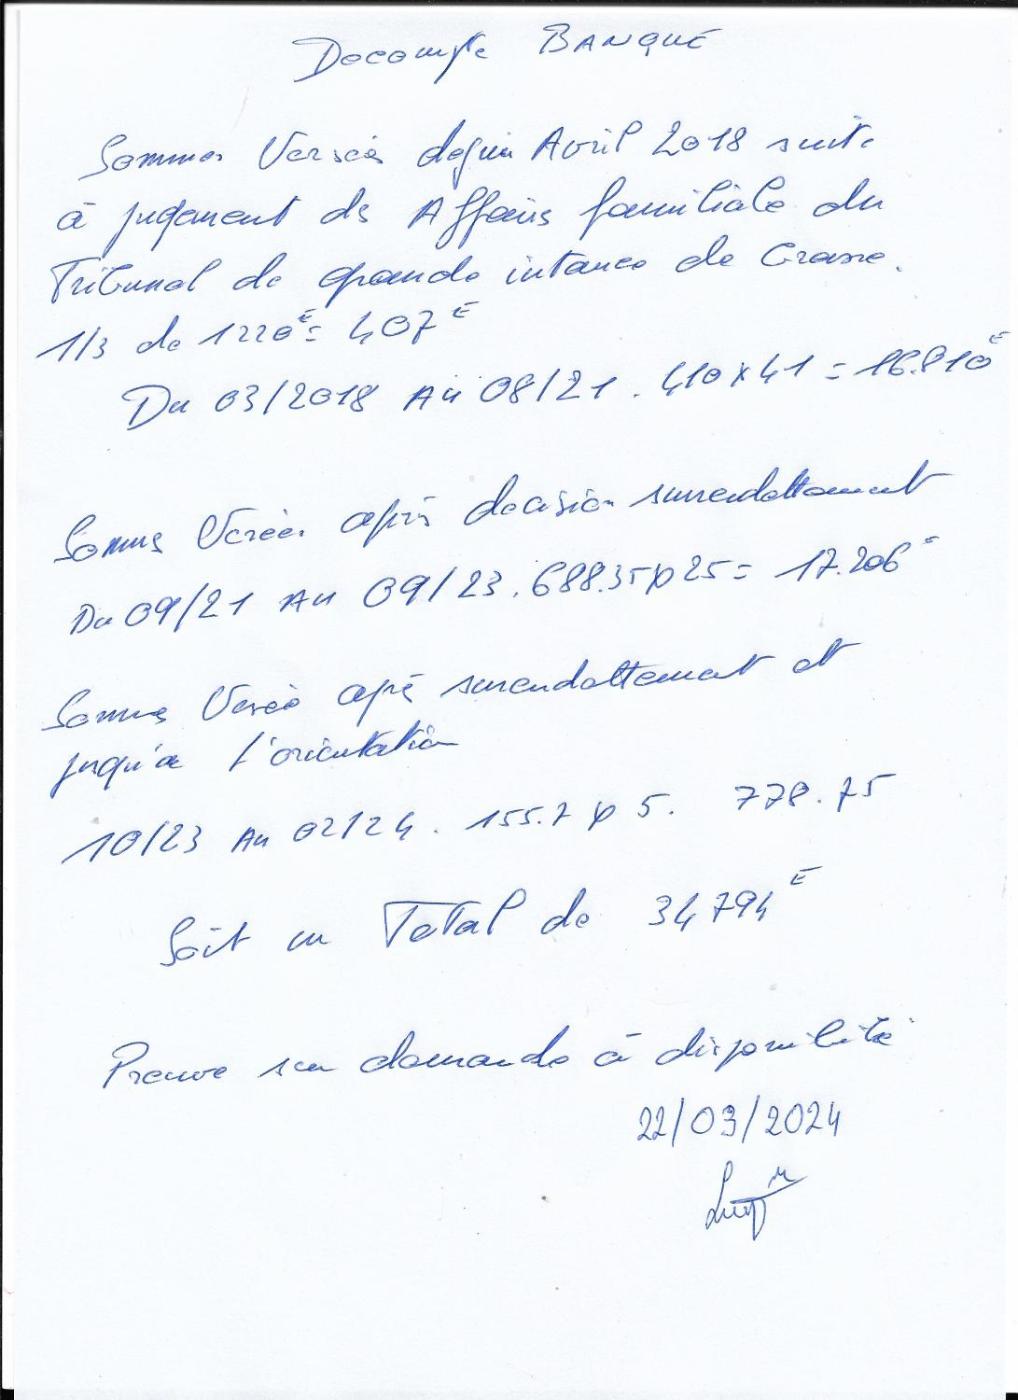 Decompte BANQUE
Sommes Versées depuis Avril 2018 suite
à jugement des Affaires familiale du
Tribunal de grande intance de Grasse.
1/3 de 1220€ = 407€
Du 03/2018 AU 08/21. 410 x 41 = 16.810€
Sommes Versées après decision surendettement
Du 09/21 AU 09/23. 688.35 x 25 = 17.206
Sommes Versée après surendettement et
jusqu'a l'orientation
10/23 AU 02/24. 155.7 x 5. 778.75
Soit un Total de 34794€
Preuve sur demande à disponibilité
22/03/2024